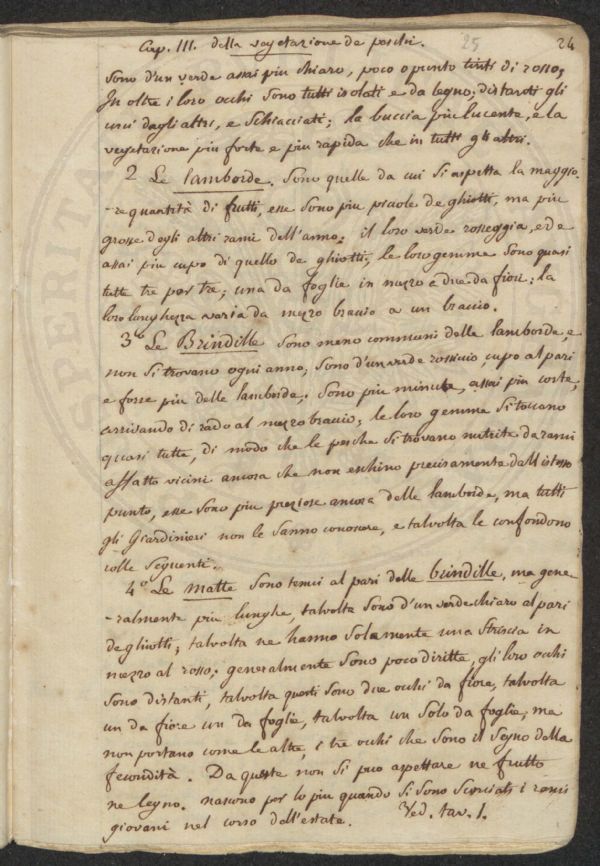 Cap. III. della vegetazione de peschi. 25 24
sono d'un verde assai piu chiaro, poco o punto tinti di rosso,
In oltre i loro occhi sono tutti isolati e da legno; distanti gli
uni dagli altri, e schiacciati; la buccia piu lucente, e la
vegetazione piu forte e piu rapida che in tutti gli altri.
2 Le lamborde. Sono quelle da cui si aspetta la maggio-
-re quantità di frutti, esse sono piu picole de ghiotti, ma piu
grosse degli altri rami dell'anno. il loro verde rosseggia, ed e
assai piu cupo di quello de ghiotti, le loro gemme sono quasi
tutte tre per tre; una da foglie in mezzo e due da fiori: la
loro lunghezza varia da mezzo braccio a un braccio.
3º Le Brindille sono meno communi delle lamborde, e
non si trovano ogni anno, sono d'un verde rossiccio, cupo al pari
e forse piu delle lamborde. Sono piu minute, assai piu corte,
arrivando di rado al mezzo braccio; le loro gemme si toccano
quasi tutte, di modo che le pesche si trovano nutrite da rami
affatto vicini ancora che non eschino precisamente dall'istesso
punto, esse sono piu preziose ancora delle lamborde, ma tutti
gli Giardinieri non le sanno conoscere, e talvolta le confondono
colle seguenti.
4º Le matte sono tenui al pari delle brindille, ma gene-
-ralmente piu lunghe, talvolta sono d'un verde chiaro al pari
de ghiotti; talvolta ne hanno solamente una striscia in
mezzo al rosso; generalmente sono poco diritte, gli loro occhi
sono distanti, talvolta questi sono due occhi da fiore, talvolta
un da fiore un da foglie, talvolta un solo da foglie, ma
non portano come le altre, i tre occhi che sono il segno della
fecondità. Da queste non si puo aspettare ne frutto
ne legno. nascono per lo piu quando si sono scorciati i rami
giovani nel corso dell'estate. Ved. tav. 1.